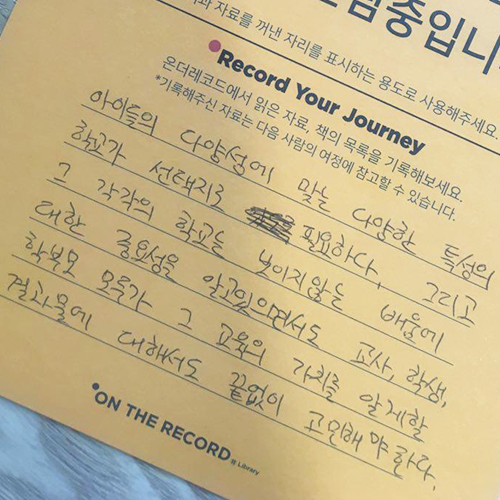 험중입니
과 자료를 꺼낸 자리를 표시하는 용도로 사용해주세요.
Record Your Journey
온더레코드에서 읽은 자료, 책의 목록을 기록해보세요.
*기록해주신 자료는 다음 사람의 여정에 참고할 수 있습니다.
아이들의 다양성에 맞는 다양한 특성의
학교가 선택지로 필요하다. 그리고
그 각각의 학교는 보이지않는 배움에
대한 중요성을 알고있으면서도 교사, 학생,
학부모 모두가 그 교육의 가치를 알게할
결과물에 대해서도 끝없이 고민해야 하다.
ON THE RECORD @ Library